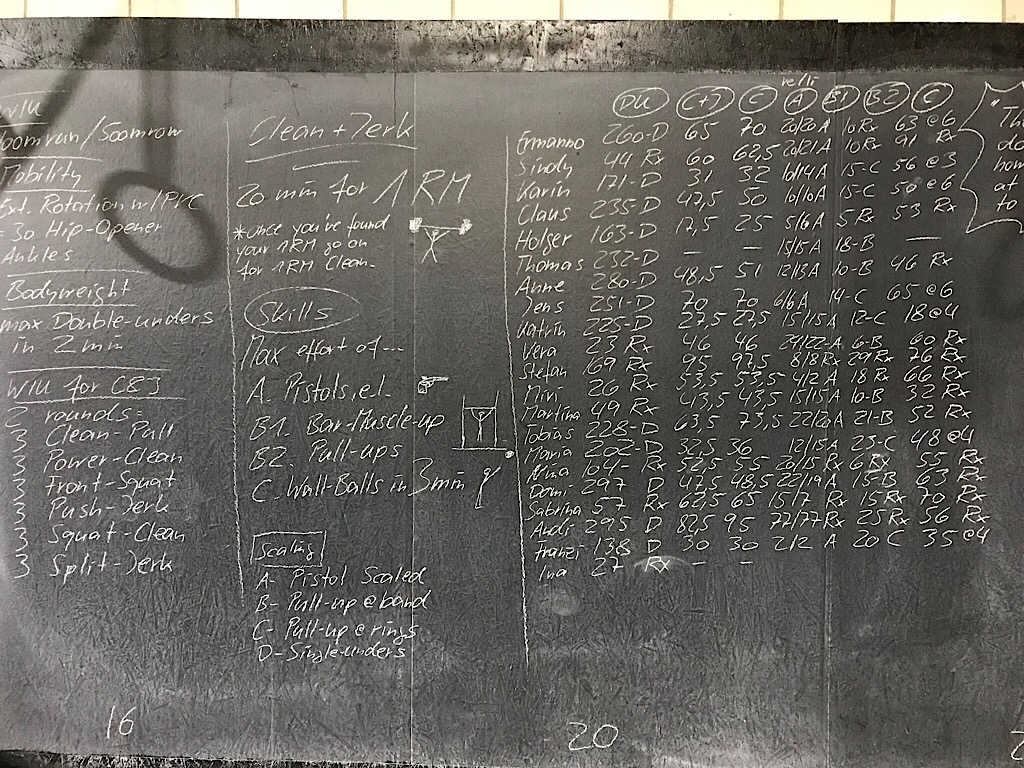 Mobility
Ext. Rotation w/PVC
30 Hip-Opener
Ankles
Bodyweight
max Double-unders
in 2 min
WU for C&J
2 rounds:
3 Clean-Pull
3 Power-Clean
3 Front-Squat
3 Push-Jerk
3 Squat-Clean
3 Split-Jerk
16
Clean + Jerk
20 min for 1 RM
*once you've found
your 1RM go on
for 1RM Clean.
Skills
Max effort of...
A. Pistols, e.l.
B1. Bar-Muscle-up
B2. Pull-ups
C. Wall-Balls in 3min
Scaling
A- Pistol Scaled
B- Pull-up @ band
C- Pull-up @ rings
D- Single-unders
re/li
DU C+J C A B1 B2 C
Ermanno 260-D 65 70 20/20 A 10 Rx 63 @6
Sindy 44 Rx 60 62,5 20/21 A 10 Rx 91 Rx
Karin 171-D 31 32 10/14 A 15-C 56 @3
Claus 235-D 47,5 50 10/10 A 15-C 50 @6
Holger 163-D 17,5 25 5/6 A 5 Rx 53 Rx
Thomas 232-D - - 15/15 A 18-B -
Anne 280-D 48,5 51 12/13 A 10-B 46 Rx
Jens 251-D 70 70 6/6 A 14-C 65 @6
Katrin 225-D 27,5 27,5 15/15 A 12-C 18 @4
Vera 23 Rx 46 46 A 6-B 60 Rx
Stefan 169 Rx 95 97,5 8/8 Rx 29 Rx 76 Rx
Miri 26 Rx 53,5 53,5 4/2 A 18 Rx 66 Rx
Martina 49 Rx 43,5 43,5 15/15 A 10-B 32 Rx
Tobias 228-D 63,5 73,5 A 21-B 52 Rx
Maria 202-D 32,5 36 12/15 A 23-C 48 @4
Nina 104- Rx 52,5 55 20/15 Rx 6 Rx 55 Rx
Domi 297 D 47,5 48,5 22/19 A 15-B 63 Rx
Sabrina 57 Rx 62,5 65 15/7 Rx 15 Rx 70 Rx
Andi 295 D 82,5 95 Rx 25 Rx 56 Rx
Franzi 138 D 30 30 2/2 A 20 C 35 @4
Ina 27 Rx - -
20